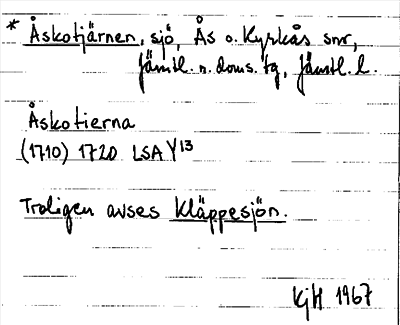 * Åskotjärnen, sjö, Ås o. Kyrkås snr,
Jämtl. n. doms. tg, Jämtl. l.
Åskotierna
(1710) 1720 LSA Y13
Troligen avses Kläppesjön.
KjH 1967